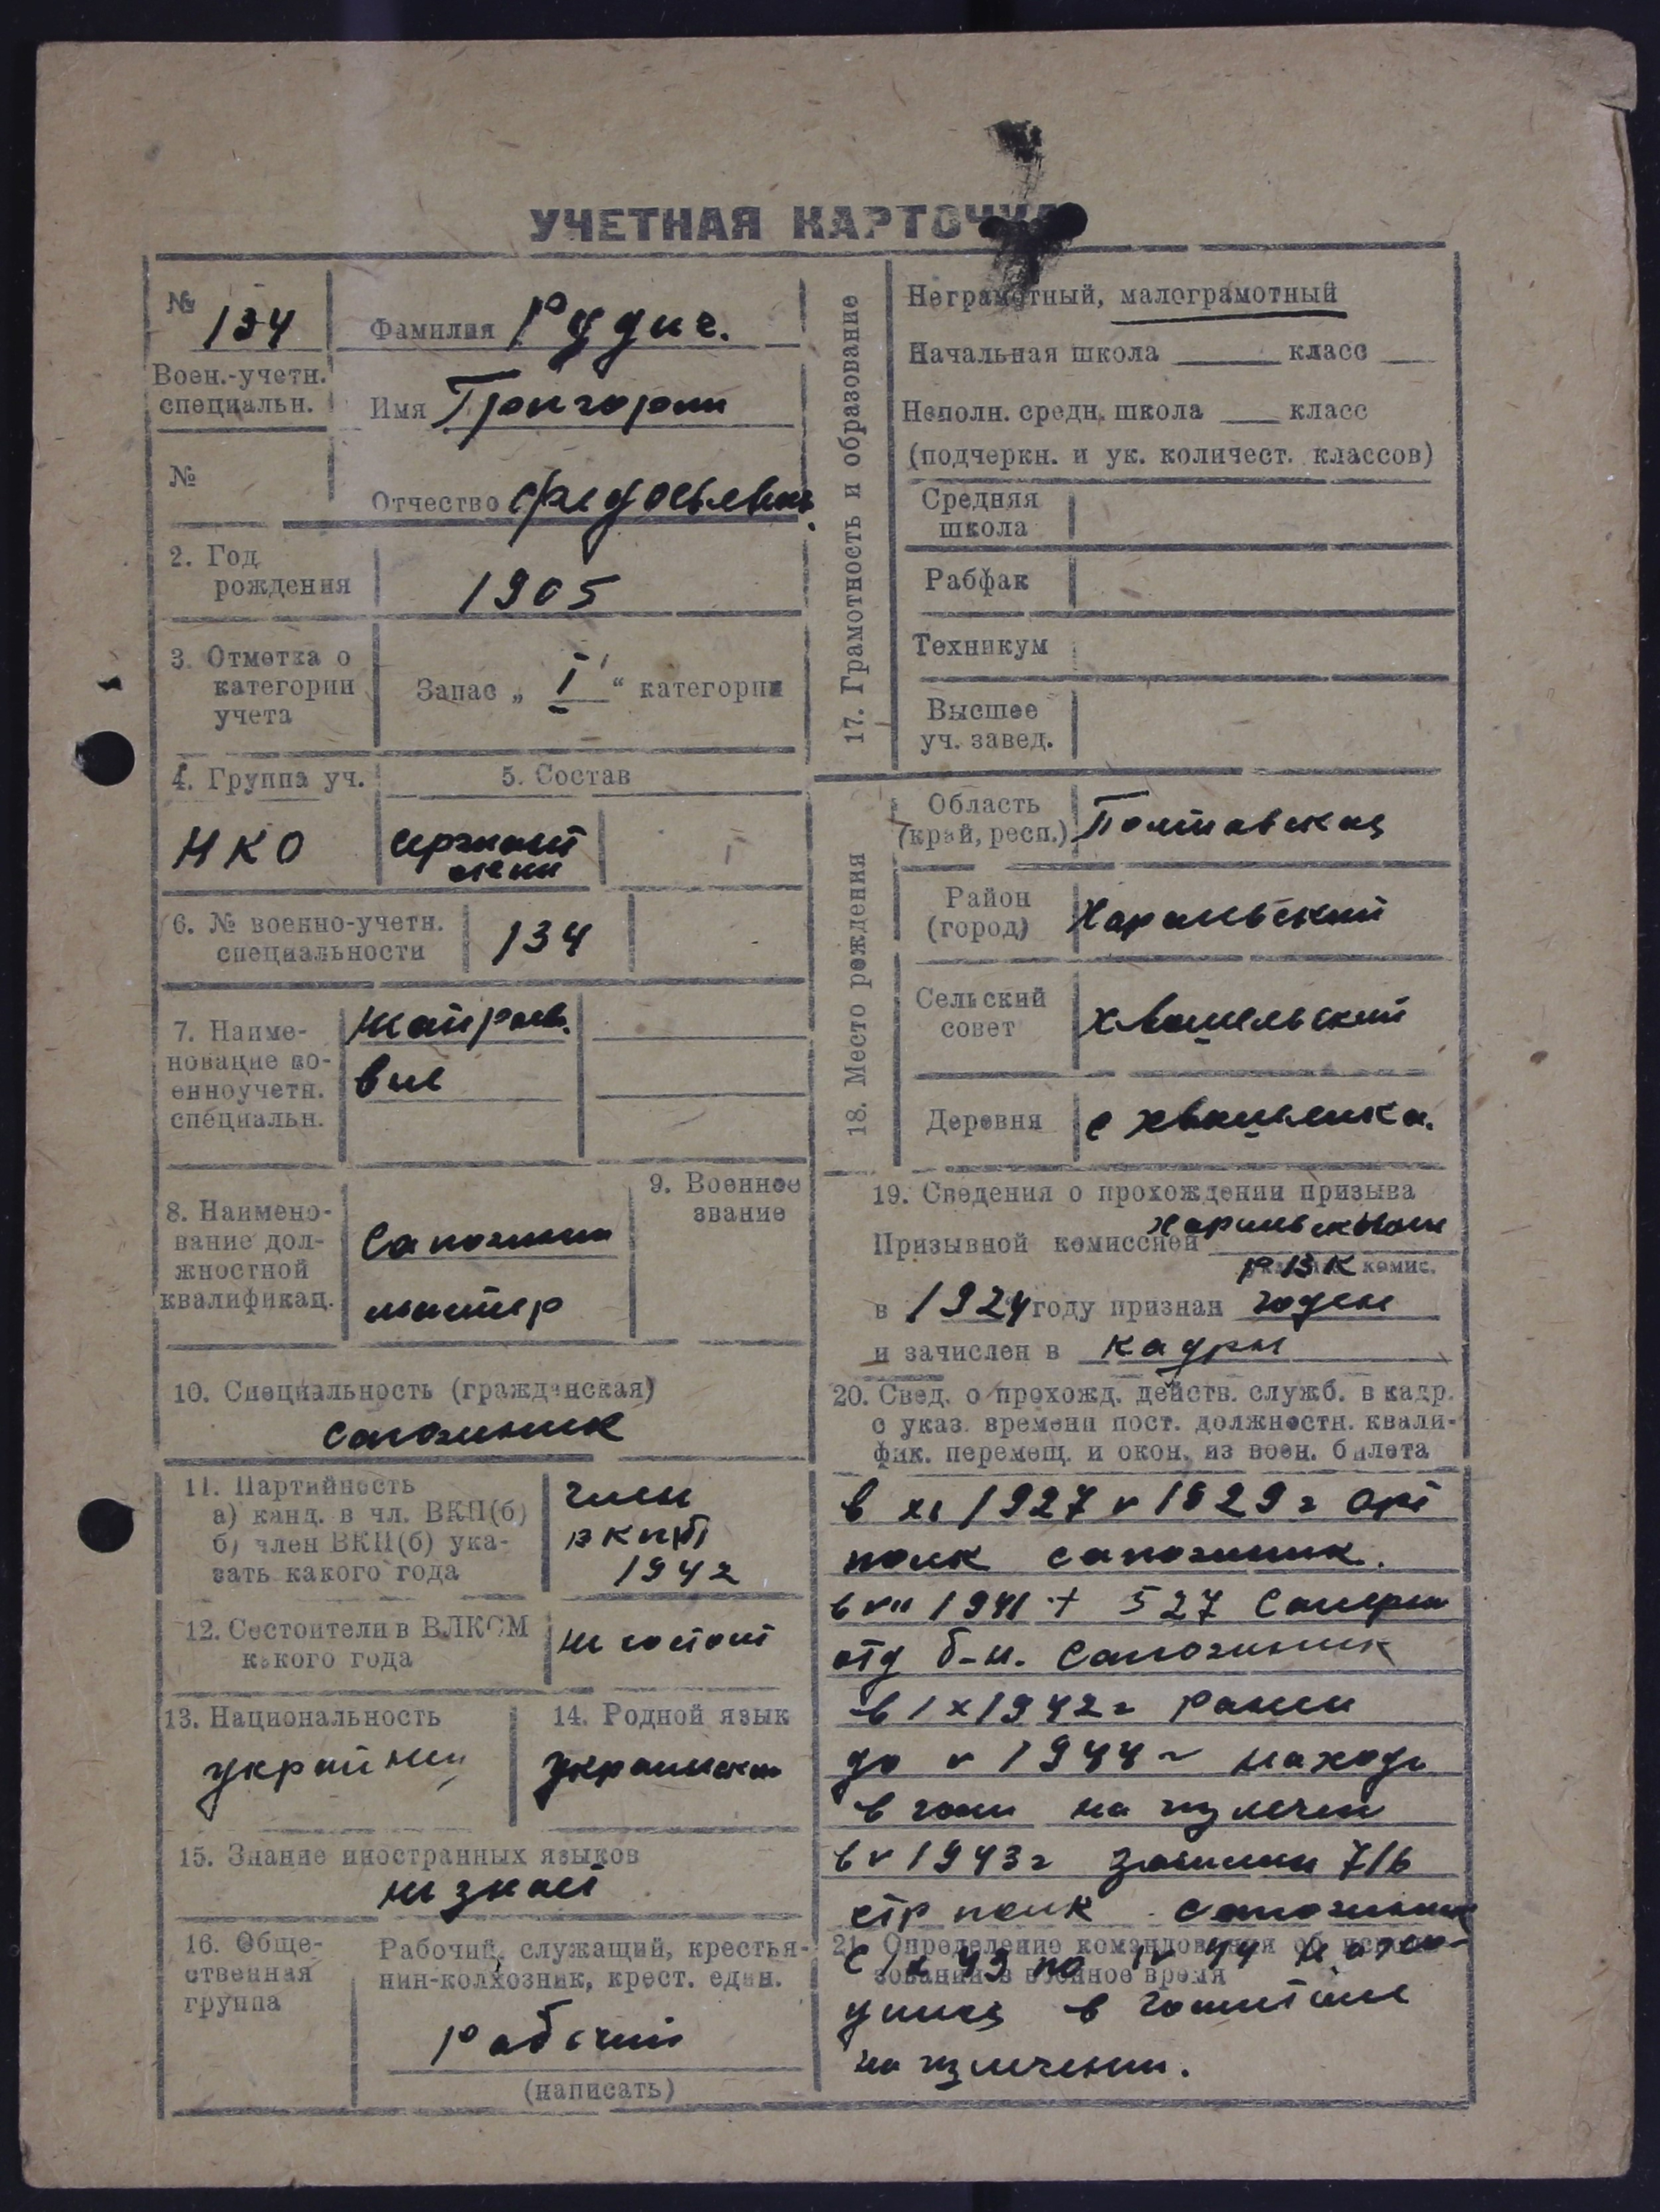 УЧЕТНАЯ КАРТОЧКА
№ 134
Воен.-учетн. специальн.
№
Фамилия Рудич.
Имя Григорий
Отчество Федосьевич
2. Год рождения
1905
3. Отметка о категории учета
Запас „ I “ категории
4. Группа уч.
5. Состав
НКО
сержант
6. № военно-учетн. специальности
134
7. Наименование военноучетн. специальн.
8. Наименование должностной квалификац.
Сапожный
мастер
9. Военное звание
10. Специальность (гражданская)
сапожник
11. Партийность
а) канд. в чл. ВКП(б)
б) член ВКП(б) указать какого года
член
ВКП(б)
1942
12. Состоит ли в ВЛКСМ какого года
не состоит
13. Национальность
украинец
14. Родной язык
украинский
15. Знание иностранных языков
не знает
16. Общественная группа
Рабочий, служащий, крестьянин-колхозник, крест. един.
Рабочий
(написать)
17. Грамотность и образование
Неграмотный, малограмотный
Начальная школа ____ класс
Неполн. средн. школа ____ класс
(подчеркн. и ук. количест. классов)
Средняя школа
Рабфак
Техникум
Высшее уч. завед.
18. Место рождения
Область (край, респ.)
Полтавская
Район (город)
Сельский совет
Деревня
с
19. Сведения о прохождении призыва
Призывной комиссией
РВК комис.
в 1927 году признан годен
и зачислен в кадры
20. Свед. о прохожд. действ. служб. в кадр.
с указ. времени пост. должностн. квали-
фик. перемещ. и окон. из воен. билета
в XI 1927 V 1929 г арт
полк сапожник.
в VII 1941 + 527 Саперн
отд б-н. Сапожник
в IX 1942 г ранен
до V 1944 г находи
в гоsп на излечен
в V 1943 г 716
стр полк сапожник
21. Определение командования об использовании в военное время
с X 43 по IV 44 нахо-
дился в госпитале
на излечении.